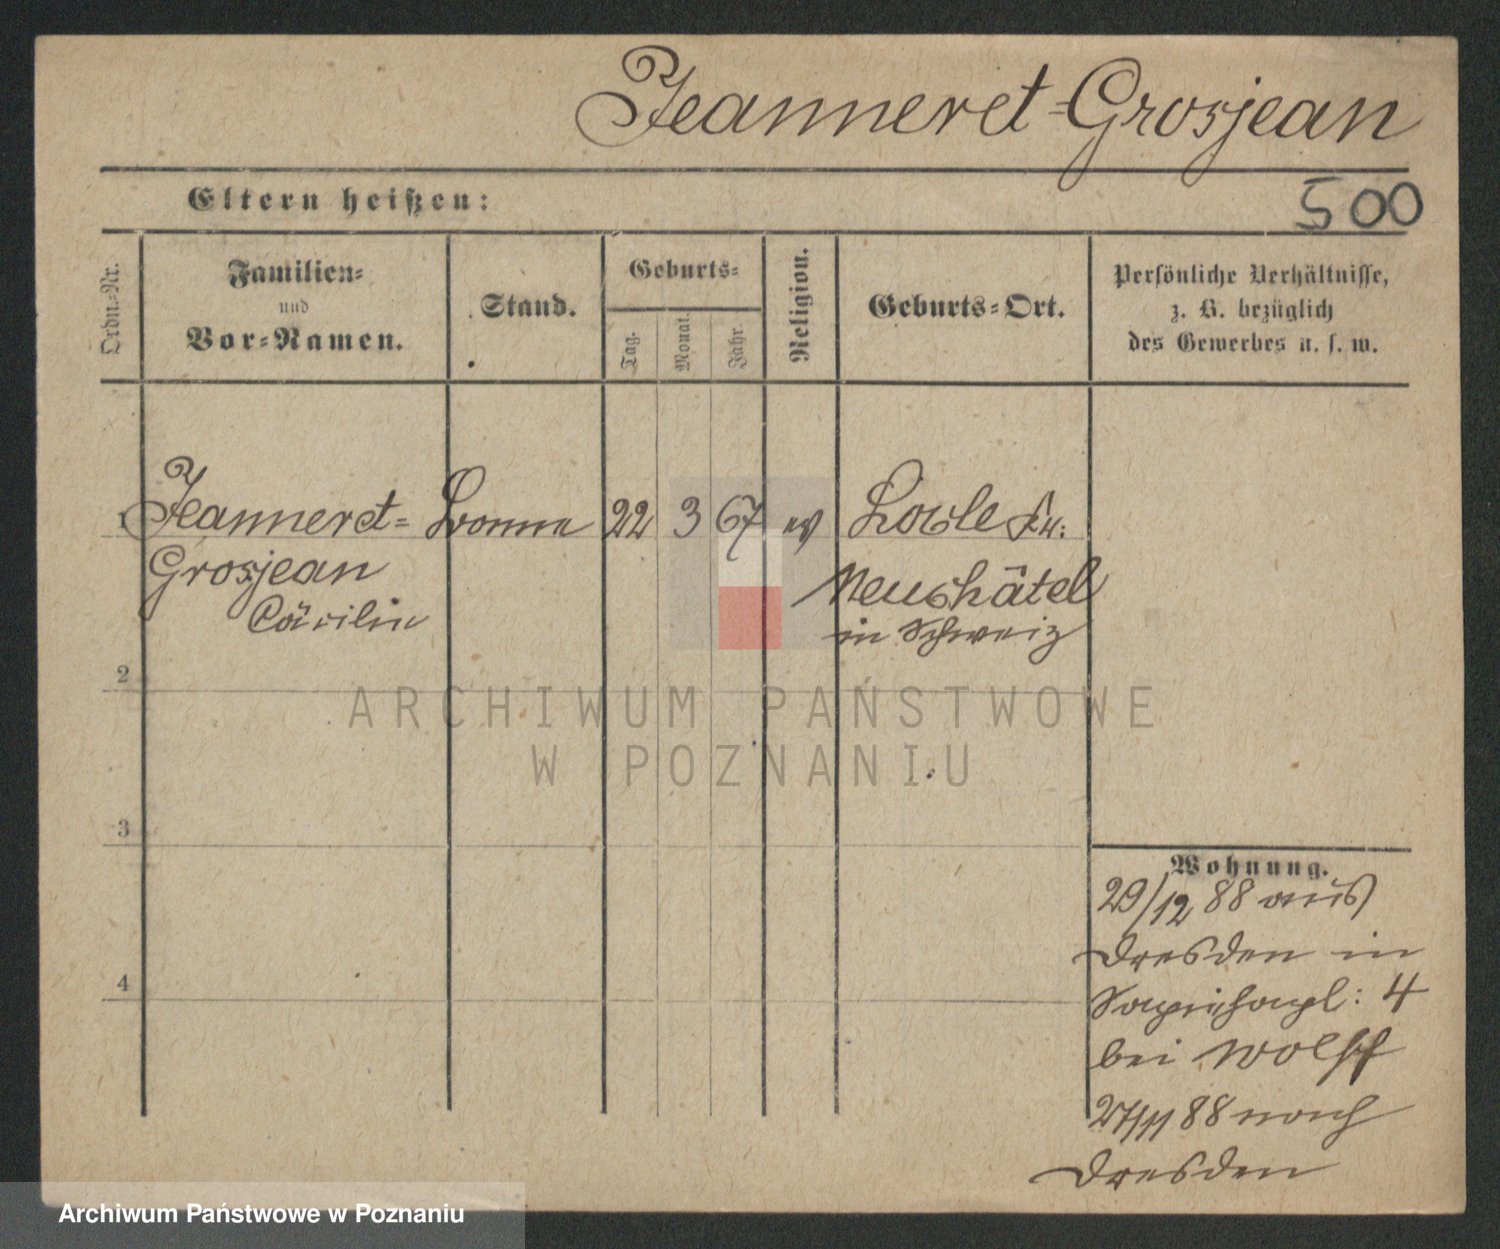 Jeanneret=Grosjean
Eltern heißen:
500
Ordn.=Nr.
Familien=
und
Vor=Namen.
Stand.
Geburts=
Tag.
Monat.
Jahr
Religion.
Geburts=Ort.
Persönliche Verhältnisse,
z. B. bezüglich
des Gewerbes u. s. w.
1 Jeanneret= Bonne 22 3 67 ev Locle
Grosjean
Cäcilie
Neuchâtel
in Schweiz
2
3
4
Wohnung.
29/12 88 aus
Dresden in
Sapiehapl: 4
bei Wolff
27/11 88 nach
Dresden
ARCHIWUM PAŃSTWOWE
W POZNANIU
Archiwum Państwowe w Poznaniu